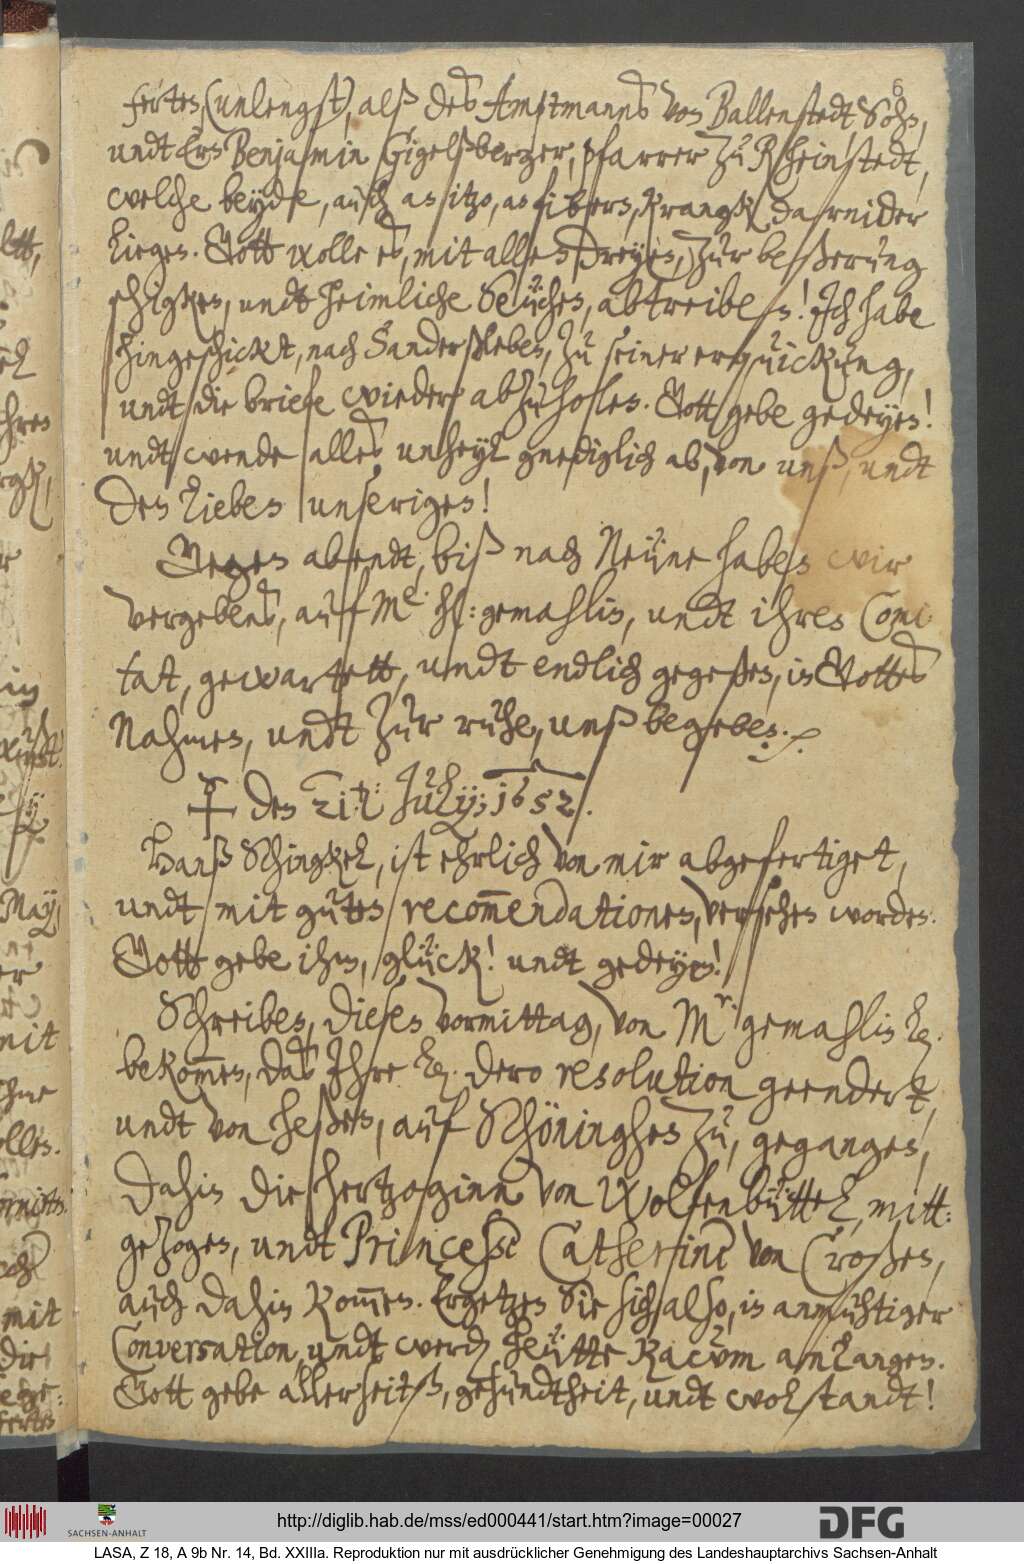 6
fertes, (unlengst), alß des Amptmanns von Ballenstedt Sohn,
undt Ern Benjamin Gigelßberger, pfarrer zu Rheinstedt,
welche beyde, auch an itzo, an fibern, kranck darnider
liegen. Gott wolle es, mit allen dreyen, zur beßerung
schigken, undt heimliche Seüchen, abtreiben! Ich habe
hingeschickt, nach Sanderßleben, zu seiner erquickung,
undt die briefe wieder abzuholen. Gott gebe gedeyen!
undt wende alles unheyl gnediglich ab, von unß, undt
den lieben unserigen!
Gegen abendt, biß nach Neüne haben wir
vergebens, auf Me: hl: gemahlin, undt ihren Comi
tat, gewartett, undt endlich gegeßen, in Gottes
Nahmen, undt zur ruhe, unß begeben.
den 21ten: July: 1652.
Hanß Schingkel, ist ehrlich von mir abgefertiget,
undt mit guten recom̄endationen, versehen worden.
Gott gebe ihm, glück! undt gedeyen!
Schreiben, diesen Vormittag, von Mr: gemahlin L.
bekom̄en, das Ihre L. dero resolution geendert,
undt von heßen, auf Schöninghen zu, gegangen,
dahin die hertzoginn von Wolfenbüttel, mitt-
gezogen, undt Princesse Catherine von Croßen,
auch dahin kom̄en. Ergetzen Sie sich also, in anmuhtiger
Conversation, undt werden heütte kaum anlangen.
Gott gebe allerseitß, gesundtheit, undt wolstandt!
http://diglib.hab.de/mss/ed000441/start.htm?image=00027
SACHSEN-ANHALT
DFG
LASA, Z 18, A 9b Nr. 14, Bd. XXIIIa. Reproduktion nur mit ausdrücklicher Genehmigung des Landeshauptarchivs Sachsen-Anhalt